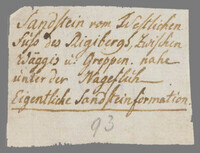 Sandstein vom Westlichen
Fuß des Rigibergs, zwischen
Wäggis u. Greppen. nahe
unter der Nagelflüh.
Eigentliche Sandsteinformation.
93